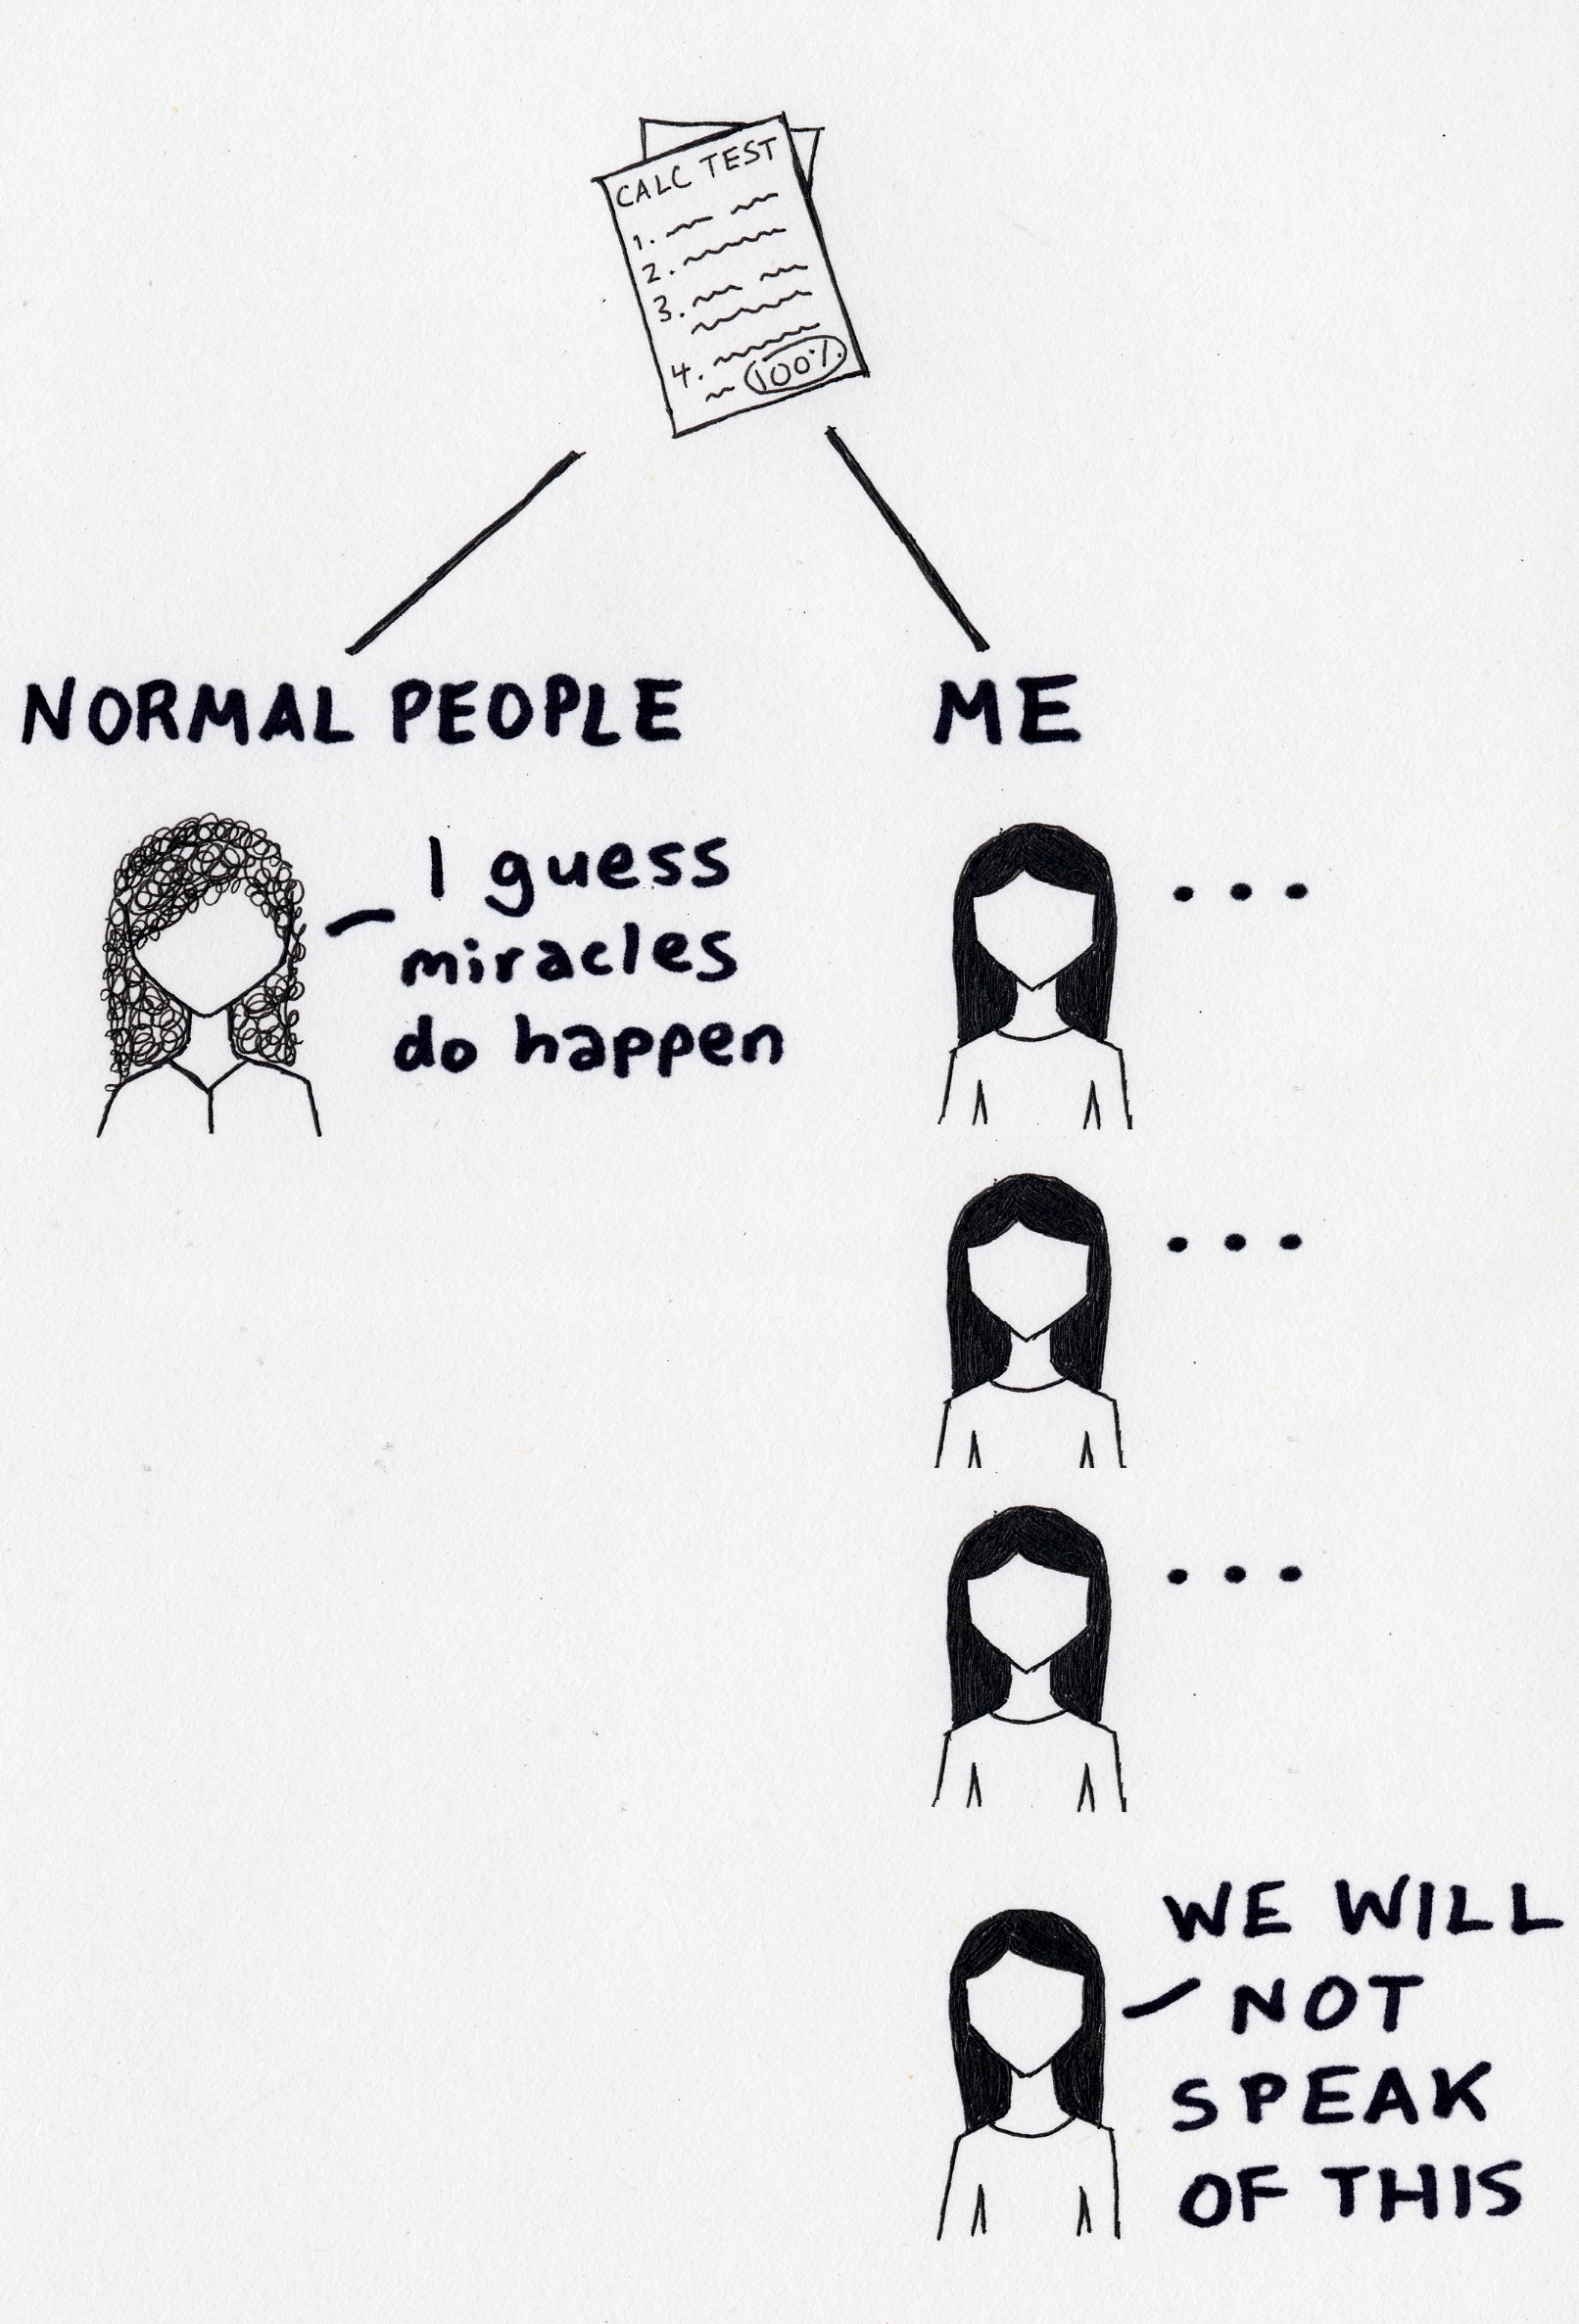 CALC TEST
1.
2.
3.
4.
100%
NORMAL PEOPLE
I guess
miracles
do happen
ME
...
...
...
WE WILL
NOT
SPEAK
OF THIS